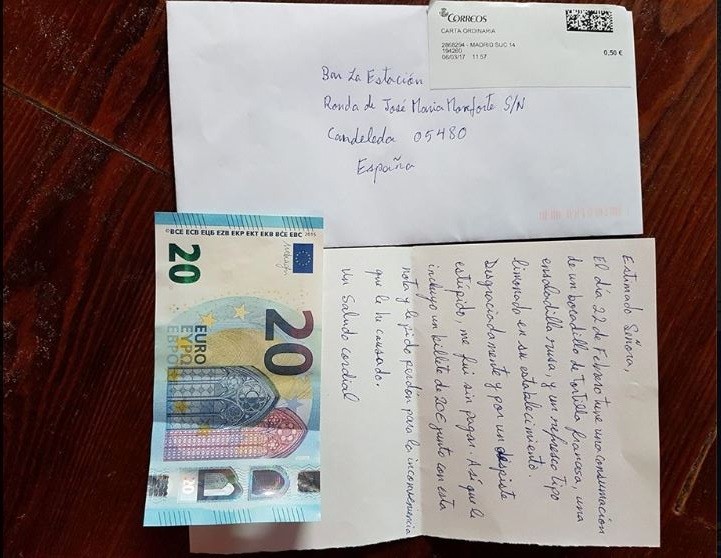 CORREOS
CARTA ORDINARIA
2868294 - MADRID SUC 14
194260
06/03/17 11:57
0,50 €
Bar La Estación
Ronda de José Maria Monforte S/N
Candeleda 05480
España
BCE ECB ЕЦБ EZB EKP EKT EKB BĊE EBC 2015
20
20
EURO
ΕΥΡΩ
ЕВРО
20
Estimada Señora,
El día 22 de Febrero tuve una consumación
de un bocadillo de tortilla francesa, una
ensaladilla rusa y un refresco tipo
limonada en su establecimiento.
Desgraciadamente y por un despiste
estúpido, me fui sin pagar. Así que le
incluyo un billete de 20€ junto con esta
nota y le pido perdón para la inconveniencia
que le he causado.
Un Saludo cordial